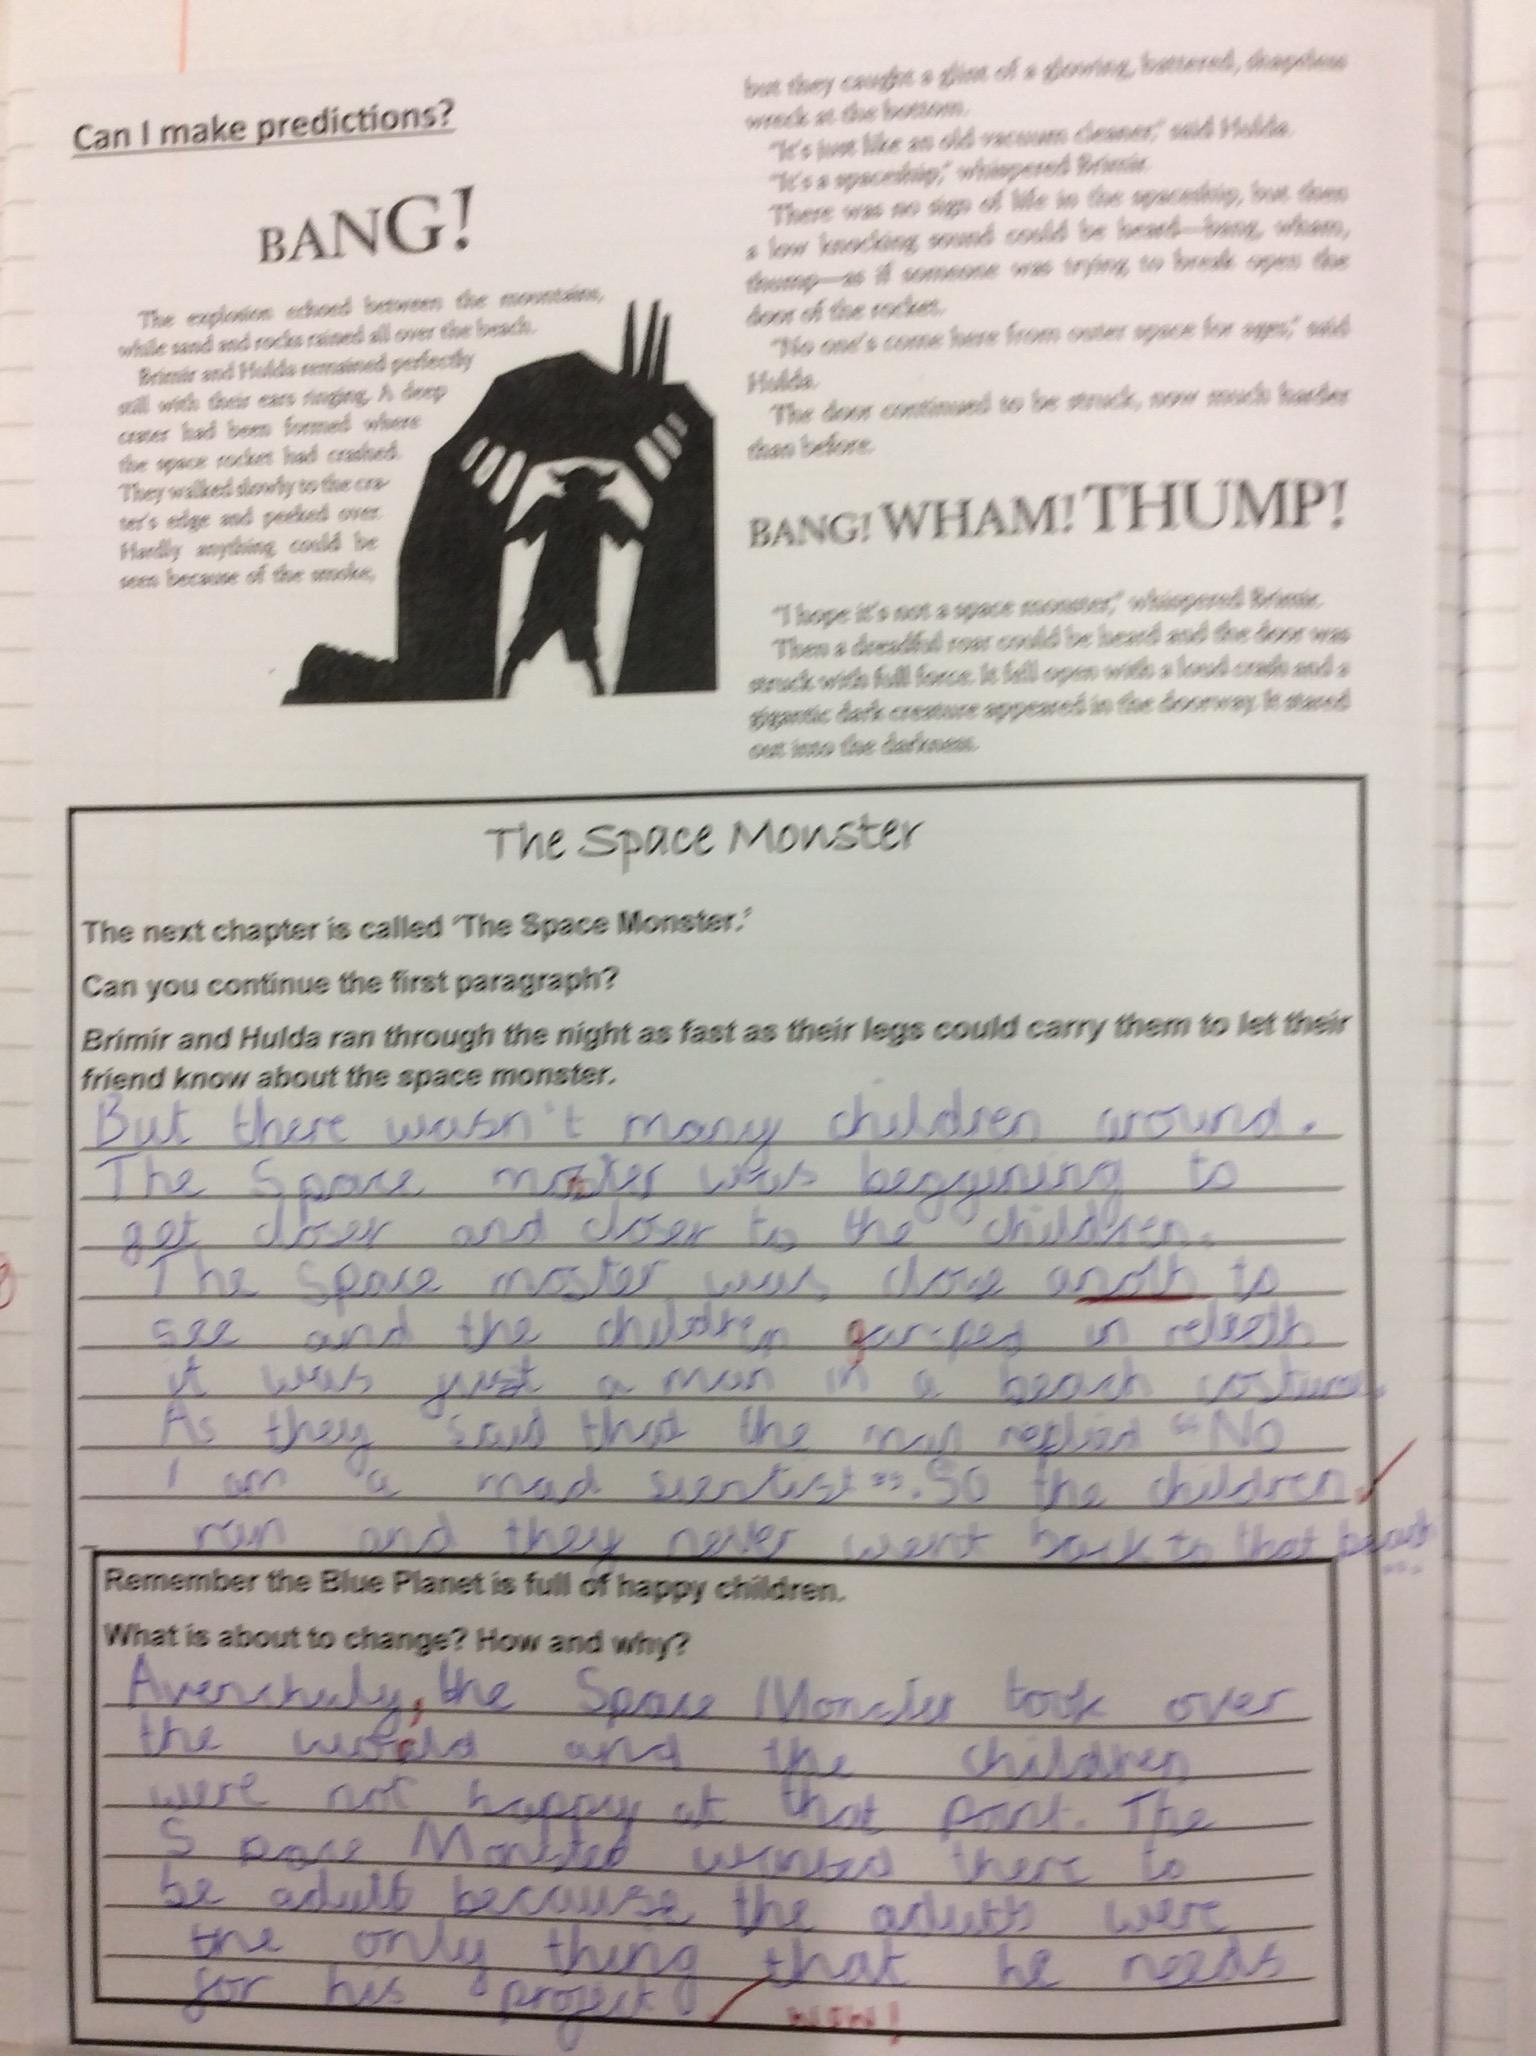 Can I make predictions?
BANG!
The explosion echoed between the mountains,
while sand and rocks rained all over the beach.
Brimir and Hulda remained perfectly
still with their ears ringing. A deep
crater had been formed where
the space rocket had crashed.
They walked slowly to the cra-
ter's edge and peeked over.
Hardly anything could be
seen because of the smoke,
but they caught a glint of a glowing, battered, shapeless
wreck at the bottom.
"It's just like an old vacuum cleaner," said Hulda.
"It's a spaceship," whispered Brimir.
There was no sign of life in the spaceship, but then
a low knocking sound could be heard—bang, wham,
thump—as if someone was trying to break open the
door of the rocket.
"No one's come here from outer space for ages," said
Hulda.
The door continued to be struck, now much harder
than before.
BANG! WHAM! THUMP!
"I hope it's not a space monster," whispered Brimir.
Then a dreadful roar could be heard and the door was
struck with full force. It fell open with a loud crash and a
gigantic dark creature appeared in the doorway. It stared
out into the darkness.
The Space Monster
The next chapter is called 'The Space Monster.'
Can you continue the first paragraph?
Brimir and Hulda ran through the night as fast as their legs could carry them to let their
friend know about the space monster.
But there wasn't many children around.
The Space monster was beggining to
get closer and closer to the children.
The Space moster was close anoth to
see and the children in
it was just a man in a beach costume.
As they said that the man replied "No
I am a mad sientist". So the children
ran and they never went back to that beach
...
Remember the Blue Planet is full of happy children.
What is about to change? How and why?
Avenchuly, the Space Monster took over
the world and the children
were not happy at that point. The
Space Monster wanted there to
be adults because the adults were
the only thing that he needs
for his project
Wow!